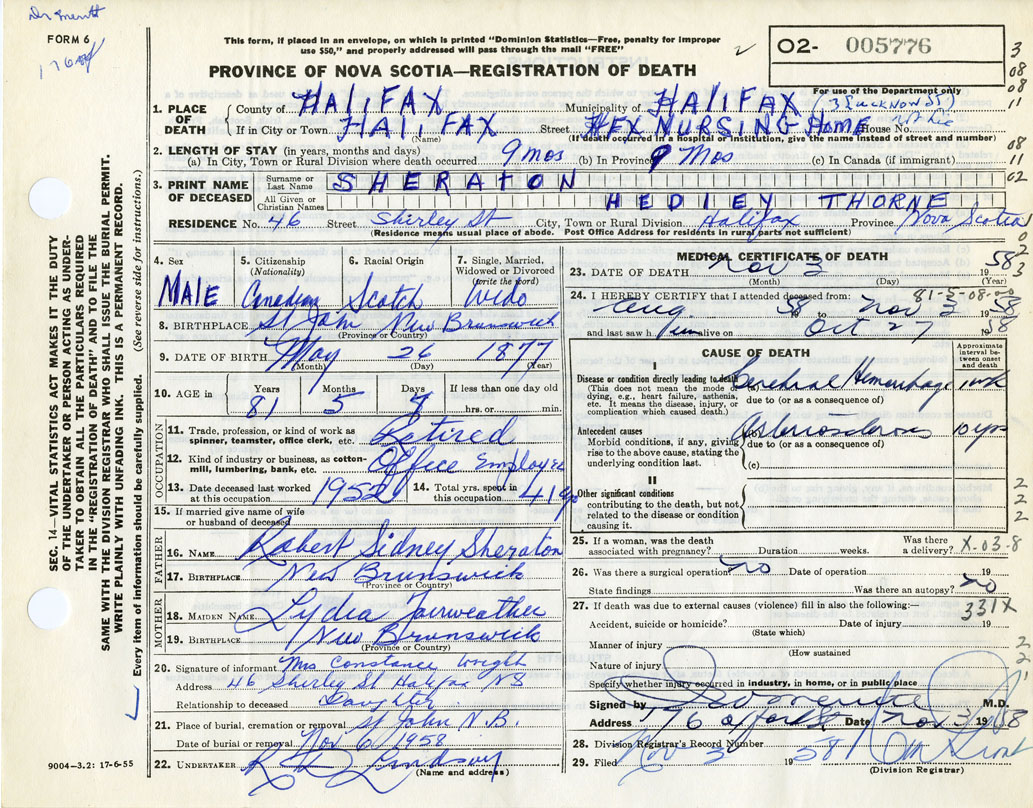 Dr Merritt
FORM 6
176 off
This form, if placed in an envelope, on which is printed "Dominion Statistics—Free, penalty for improper
use $50," and properly addressed will pass through the mail "FREE"
02- 005776
PROVINCE OF NOVA SCOTIA—REGISTRATION OF DEATH
For use of the Department only
1. PLACE OF DEATH
County of HALIFAX Municipality of HALIFAX
If in City or Town HALIFAX Street HFX NURSING HOME House No.
(Name) (If death occurred in a hospital or institution, give the name instead of street and number)
2. LENGTH OF STAY (in years, months and days)
(a) In City, Town or Rural Division where death occurred 9 mos (b) In Province 9 Mos (c) In Canada (if immigrant)
3. PRINT NAME OF DECEASED
Surname or Last Name SHERATON
All Given or Christian Names HEDLEY THORNE
RESIDENCE No. 46 Street Shirley St City, Town or Rural Division Halifax Province Nova Scotia
(Residence means usual place of abode. Post Office Address for residents in rural parts not sufficient)
4. Sex MALE
5. Citizenship (Nationality) Canadian
6. Racial Origin Scotch
7. Single, Married, Widowed or Divorced (write the word) Wido
8. BIRTHPLACE St John New Brunswick
(Province or Country)
9. DATE OF BIRTH May 26 1877
(Month) (Day) (Year)
10. AGE in Years 81 Months 5 Days If less than one day old hrs. or min.
OCCUPATION
11. Trade, profession or kind of work as spinner, teamster, office clerk, etc. Retired
12. Kind of industry or business, as cotton-mill, lumbering, bank, etc. Office Employee
13. Date deceased last worked at this occupation 1952
14. Total yrs. spent in this occupation 41 yrs
15. If married give name of wife or husband of deceased
FATHER
16. NAME Robert Sidney Sheraton
17. BIRTHPLACE New Brunswick
(Province or Country)
MOTHER
18. MAIDEN NAME Lydia Fairweather
19. BIRTHPLACE New Brunswick
(Province or Country)
20. Signature of informant Mrs Constance Wright
Address 46 Shirley St Halifax NS
Relationship to deceased Daughter
21. Place of burial, cremation or removal St John N.B.
Date of burial or removal Nov 6 1958
22. UNDERTAKER Lindsay
(Name and address)
MEDICAL CERTIFICATE OF DEATH
23. DATE OF DEATH Nov 3 1958
(Month) (Day) (Year)
81-5-08-
24. I HEREBY CERTIFY that I attended deceased from:
Aug 58 to Nov 3 1958
and last saw him alive on Oct 27 1958
CAUSE OF DEATH
Approximate interval between onset and death
I
Disease or condition directly leading to death
(This does not mean the mode of dying, e.g., heart failure, asthenia, etc. It means the disease, injury, or complication which caused death.)
(a) Cerebral Hemorrhage 1 wk
due to (or as a consequence of)
Antecedent causes
Morbid conditions, if any, giving rise to the above cause, stating the underlying condition last.
(b) Arteriosclerosis 10 yrs
due to (or as a consequence of)
(c)
II
Other significant conditions
contributing to the death, but not related to the disease or condition causing it.
25. If a woman, was the death associated with pregnancy? Duration weeks. Was there a delivery? X-03-8
26. Was there a surgical operation? no Date of operation 19
State findings Was there an autopsy? no
27. If death was due to external causes (violence) fill in also the following:— 331X
Accident, suicide or homicide? Date of injury 19
(State which)
Manner of injury
(How sustained)
Nature of injury
Specify whether injury occurred in industry, in home, or in public place
Signed by M.D.
Address 176 Date Nov 3 1958
28. Division Registrar's Record Number
29. Filed Nov 3 1958
(Division Registrar)
SEC. 14—VITAL STATISTICS ACT MAKES IT THE DUTY
OF THE UNDERTAKER OR PERSON ACTING AS UNDER-
TAKER TO OBTAIN ALL THE PARTICULARS REQUIRED
IN THE "REGISTRATION OF DEATH" AND TO FILE THE
SAME WITH THE DIVISION REGISTRAR WHO SHALL ISSUE THE BURIAL PERMIT.
WRITE PLAINLY WITH UNFADING INK. THIS IS A PERMANENT RECORD.
Every item of information should be carefully supplied. (See reverse side for instructions.)
9004—3.2: 17-6-55
3
08
08
11
08
11
02
0
2
3
2
2
2
2
2
1